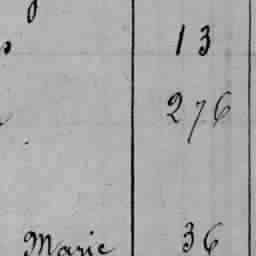 13
276
Marie 36